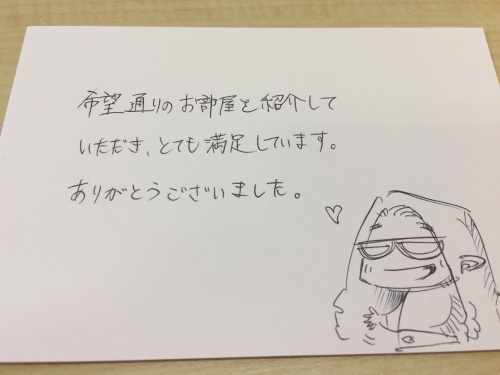 希望通りのお部屋を紹介して
いただき、とても満足しています。
ありがとうございました。